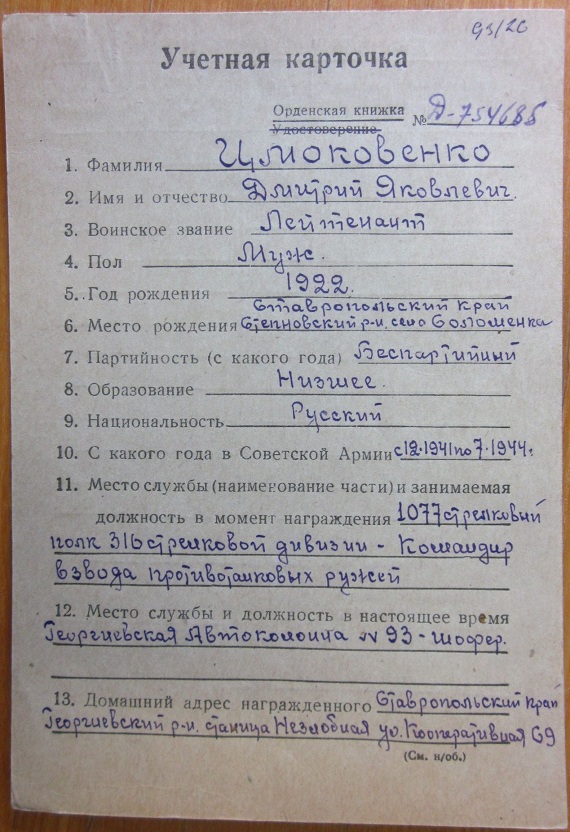 93/20
Учетная карточка
Орденская книжка
Удостоверение № Д-754685
1. Фамилия Цмоковенко
2. Имя и отчество Дмитрий Яковлевич.
3. Воинское звание Лейтенант
4. Пол Муж.
5. Год рождения 1922.
Ставропольский край
6. Место рождения Степновский р-н. село Соломенка
7. Партийность (с какого года) Беспартийный
8. Образование Низшее.
9. Национальность Русский
10. С какого года в Советской Армии с 12.1941 по 7.1944г.
11. Место службы (наименование части) и занимаемая
должность в момент награждения 1077 стрелковый
полк 316 стрелковой дивизии - Командир
взвода противотанковых ружей
12. Место службы и должность в настоящее время
Георгиевская Автоколонна № 93 - шофер.
13. Домашний адрес награжденного Ставропольский край
Георгиевский р-н. станица Незлобная ул. Кооперативная 69
(См. н/об.)